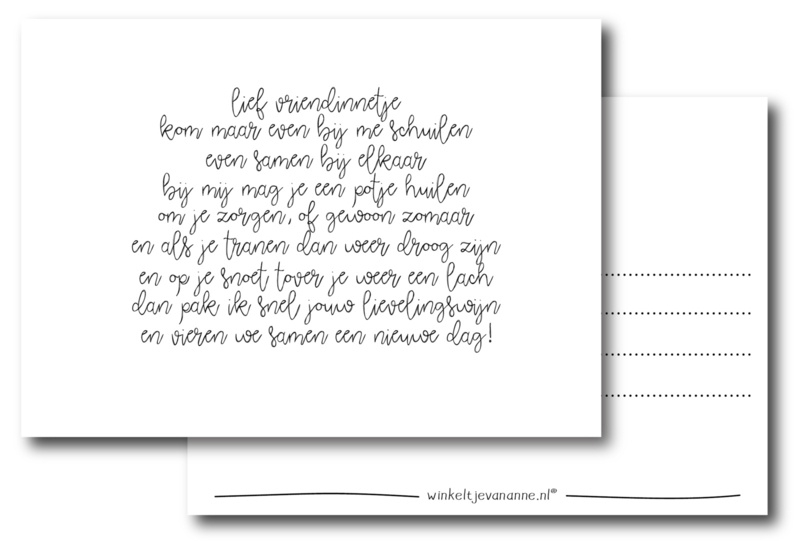 lief vriendinnetje
kom maar even bij me schuilen
even samen bij elkaar
bij mij mag je een potje huilen
om je zorgen, of gewoon zomaar
en als je tranen dan weer droog zijn
en op je snoet tover je weer een lach
dan pak ik snel jouw lievelingswijn
en vieren we samen een nieuwe dag!
winkeltjevananne.nl®